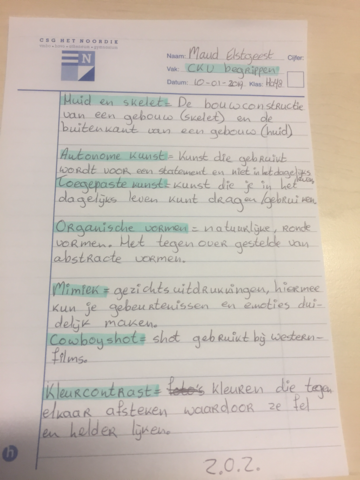 CSG HET NOORDIK
Naam: Maud Elstgeest Cijfer:
Vak: CKU begrippen
Datum: 10-01-2019 Klas:
Huid en skelet = De bouwconstructie
van een gebouw (skelet) en de
buitenkant van een gebouw (huid)
Autonome kunst = Kunst die gebruikt
wordt voor een statement en niet in het dagelijks
Toegepaste kunst = kunst die je in het
dagelijks leven kunt dragen/gebruiken
Organische vormen = natuurlijke, ronde
vormen. Het tegen over gestelde van
abstracte vormen.
Mimiek = gezichtsuitdrukkingen, hiermee
kun je gebeurtenissen en emoties dui-
delijk maken.
Cowboyshot = shot gebruikt bij western-
films.
Kleurcontrast = foto's kleuren die tegen
elkaar afsteken waardoor ze fel
en helder lijken.
h
z.o.z.